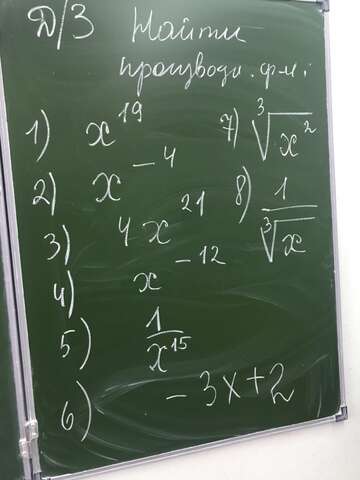 Д/З Найти
производн. ф-ии:
1) x^19
2) x^-4
3) 4x^21
4) x^-12
5) 1/x^15
6) -3x+2
7) ∛x^2
8) 1/∛x